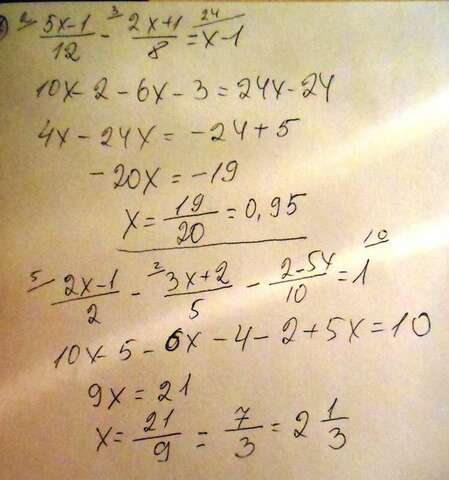 2/ 5x-1/12 - 3/ 2x+1/8 = 24/ x-1
10x-2-6x-3=24x-24
4x-24x=-24+5
-20x=-19
x=19/20=0,95
5/ 2x-1/2 - 2/ 3x+2/5 - 2-5x/10 = 10/ 1
10x-5-6x-4-2+5x=10
9x=21
x=21/9=7/3=2 1/3